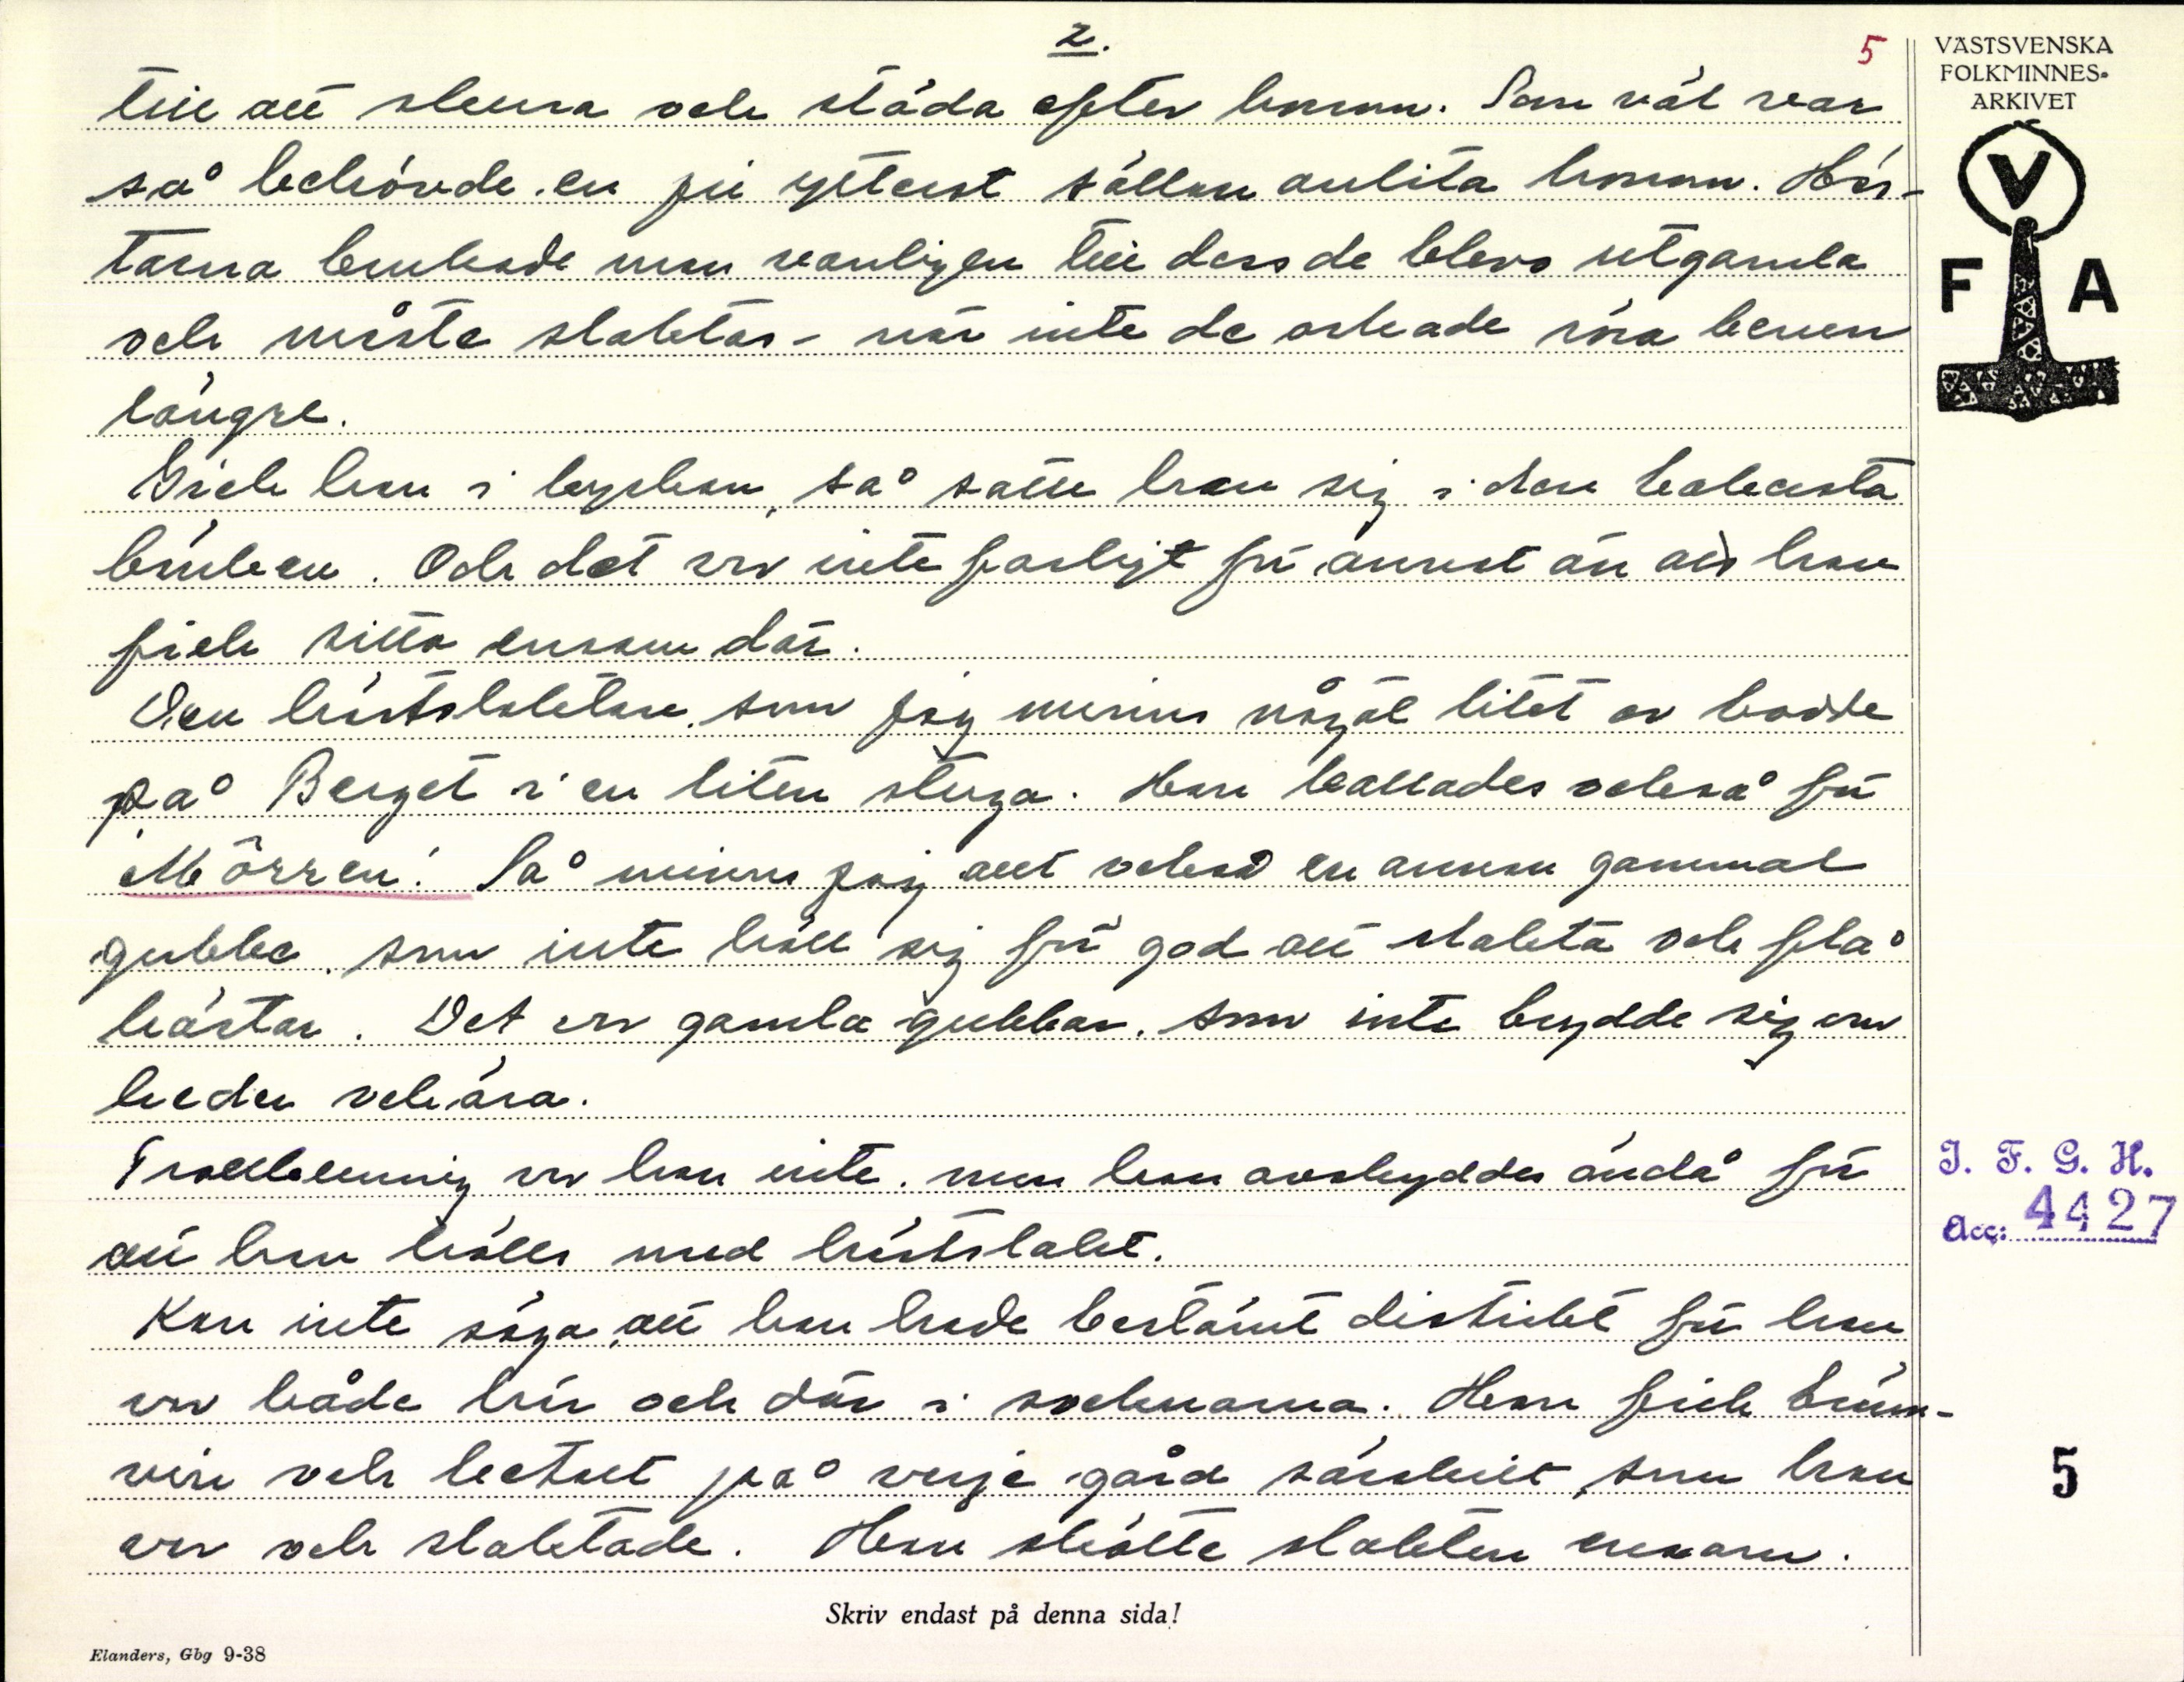 2.
5
VÄSTSVENSKA
FOLKMINNES-
ARKIVET
V
F A
till att skura och städa efter honom. Som väl var
så behövde en ju ytterst sällan anlita honom. Häs-
tarna brukade man vanligen till dess de blevo utgamla
och måste slaktas - när inte de orkade röra benen
längre.
Gick han i kyrkan, så satte han sig i den bakersta
bänken. Och det var inte farligt för annat än att han
fick sitta ensam där.
Den hästslaktare, som jag minns något litet av bodde
på Berget i en liten stuga. Han kallades också för
"Mårren". Så minns jag att också en annan gammal
gubbe, som inte höll sig för god att slakta och flå
hästar. Det var gamla gubbar, som inte brydde sig om
heder och ära.
Trollkunnig var han inte, men han avskyddes ändå för
att han hölls med hästslakt.
Kan inte säga, att han hade bestämt distrikt för han
var både här och där i socknarna. Han fick bränn-
vin och betalt på varje gård särskilt, som han
var och slaktade. Han skötte slakten ensam.
I. F. G. H.
Acc: 4427
5
Skriv endast på denna sida!
Elanders, Gbg 9-38